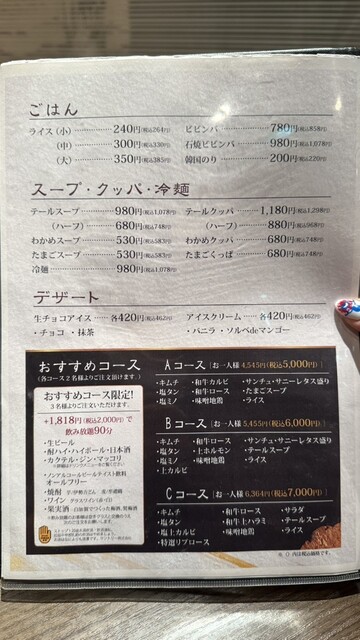 ごはん
ライス(小) 240円(税込264円)
(中) 300円(税込330円)
(大) 350円(税込385円)
ビビンバ 780円(税込858円)
石焼ビビンバ 980円(税込1,078円)
韓国のり 200円(税込220円)
スープ・クッパ・冷麺
テールスープ 980円(税込1,078円)
(ハーフ) 680円(税込748円)
わかめスープ 530円(税込583円)
たまごスープ 530円(税込583円)
冷麺 980円(税込1,078円)
テールクッパ 1,180円(税込1,298円)
(ハーフ) 880円(税込968円)
わかめクッパ 680円(税込748円)
たまごくっぱ 680円(税込748円)
デザート
生チョコアイス 各420円(税込462円)
・チョコ ・抹茶
アイスクリーム 各420円(税込462円)
・バニラ・ソルベdeマンゴー
おすすめコース
(各コース2名様よりご注文頂けます。)
おすすめコース限定!
3名様よりご注文いただけます。
+1,818円(税込2,000円)で
飲み放題90分
・生ビール
・酎ハイ・ハイボール・日本酒
・カクテル・ジン・マッコリ
・ノンアルコールビールテイスト飲料
オールフリー
・焼酎
・ワイン グラスワイン(赤・白)
・果実酒
Aコース 「お一人様 4,545円(税込5,000円)」
・キムチ ・和牛カルビ ・サンチュ・サニーレタス盛り
・塩タン ・和牛ロース ・たまごスープ
・塩ミノ ・味噌地鶏 ・ライス
Bコース 「お一人様 5,455円(税込6,000円)」
・キムチ ・和牛ロース ・サンチュ・サニーレタス盛り
・塩タン ・上ホルモン ・テールスープ
・塩ミノ ・味噌地鶏 ・ライス
・上カルビ
Cコース 「お一人様 6,364円(税込7,000円)」
・キムチ ・和牛ロース ・サラダ
・塩タン ・和牛上ハラミ ・テールスープ
・塩上カルビ ・味噌地鶏 ・ライス
・特選リブロース